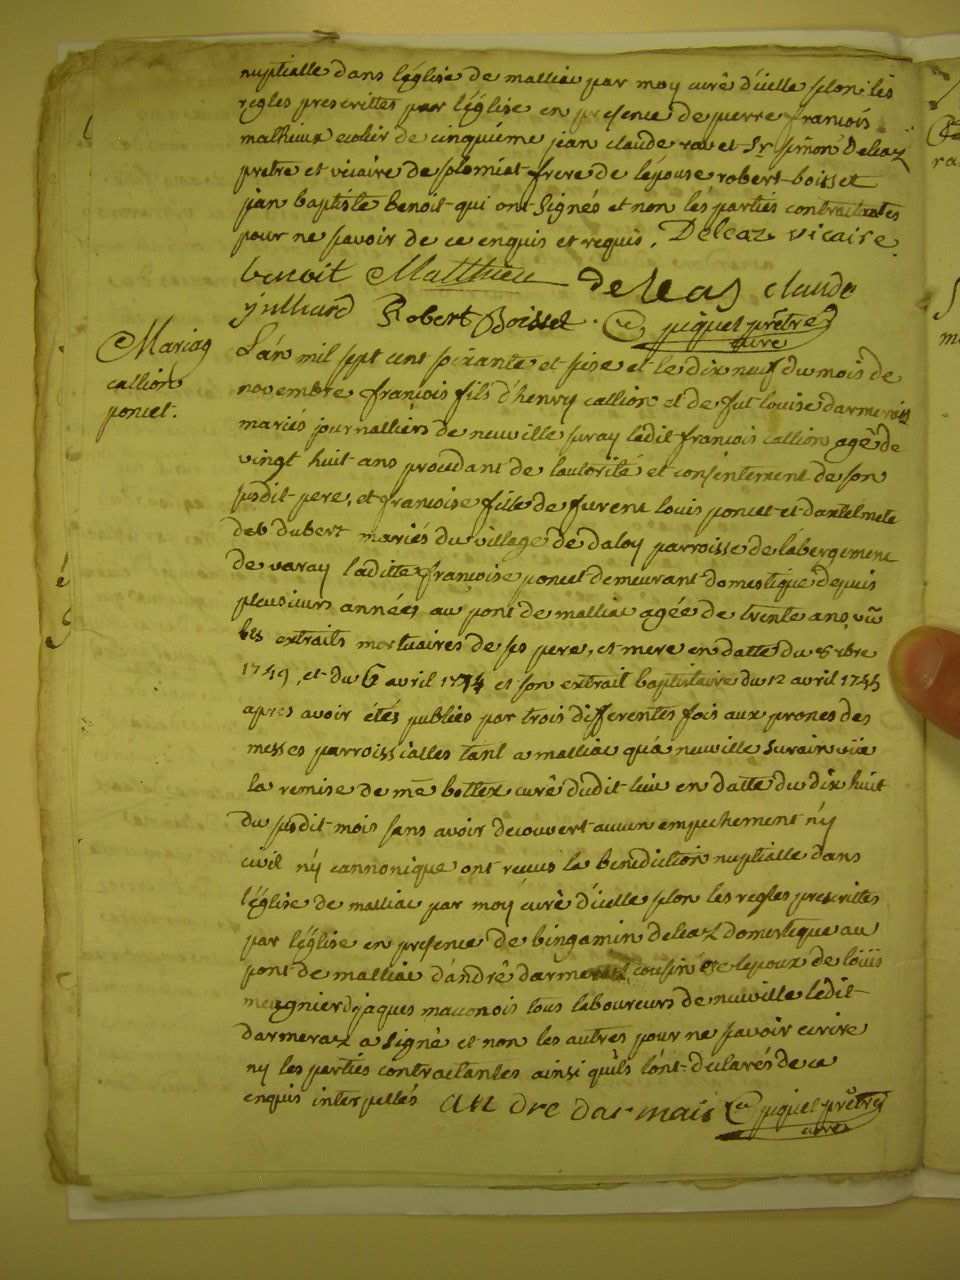 nuptialle dans léglise de malliac par moy curé d'icelle selon les
regles prescrittes par léglise en presence de pierre francois
mathieux ecolier de cinquiéme jean claude rav et Sr simon Deleaz
pretre et vicaire de frere de lépouse robert boisset
jean baptiste benoit qui ont signés et non les parties contractantes
pour ne scavoir de ce enquis et requis. Deleaz vicaire
benoit Matthieu deleas claude
julliard Robert Boisset. piquet prêtre
curé
Mariag
callion
poncet.
L'an mil sept cent soixante et seise et le dix neuf du mois de
novembre francois fils d'henry callion et de fut louise darmerais
mariés journalliérs de neuville suray ledit francois callion agé de
vingt huit ans procedant de l'autorité et consentement de son
susdit pere, et francoise fille de furent louis poncet et
dubert mariés du village de daloy parroisse de labergement
de varay laditte francoise poncet demeurant domestique depuis
plusieurs années au pont de malliac agée de trente ans, vû
les extraits mortuaires de ses pere, et mere en datte du 8 bre
1749, et du 6 avril et son extrait baptistaire du 12 avril
apres avoir étés publiés par trois differentes fois aux prones des
messes parroissialles tant a malliac qu'a neuville surain vüe
la remise de mê bottex curé dudit lieu en datte du dix huit
du susdit mois sans avoir decouvert aucun empechement n'y
civil n'y cannonique ont recus la benediction nuptialle dans
l'église de malliac par moy curé d'icelle selon les regles prescrittes
par léglise en presence de bingamin deleaz domestique au
pont de malliac d'andré darmeraz cousin de lepoux de loüis
meugnier djaques maconois tous laboureurs de neuville ledit
darmeraz a signé et non les autres pour ne scavoir ecrire
ny les parties contractantes ainsi quils l'ont declarés de ce
enquis interpellés andre darmais piquet prêtre
curé